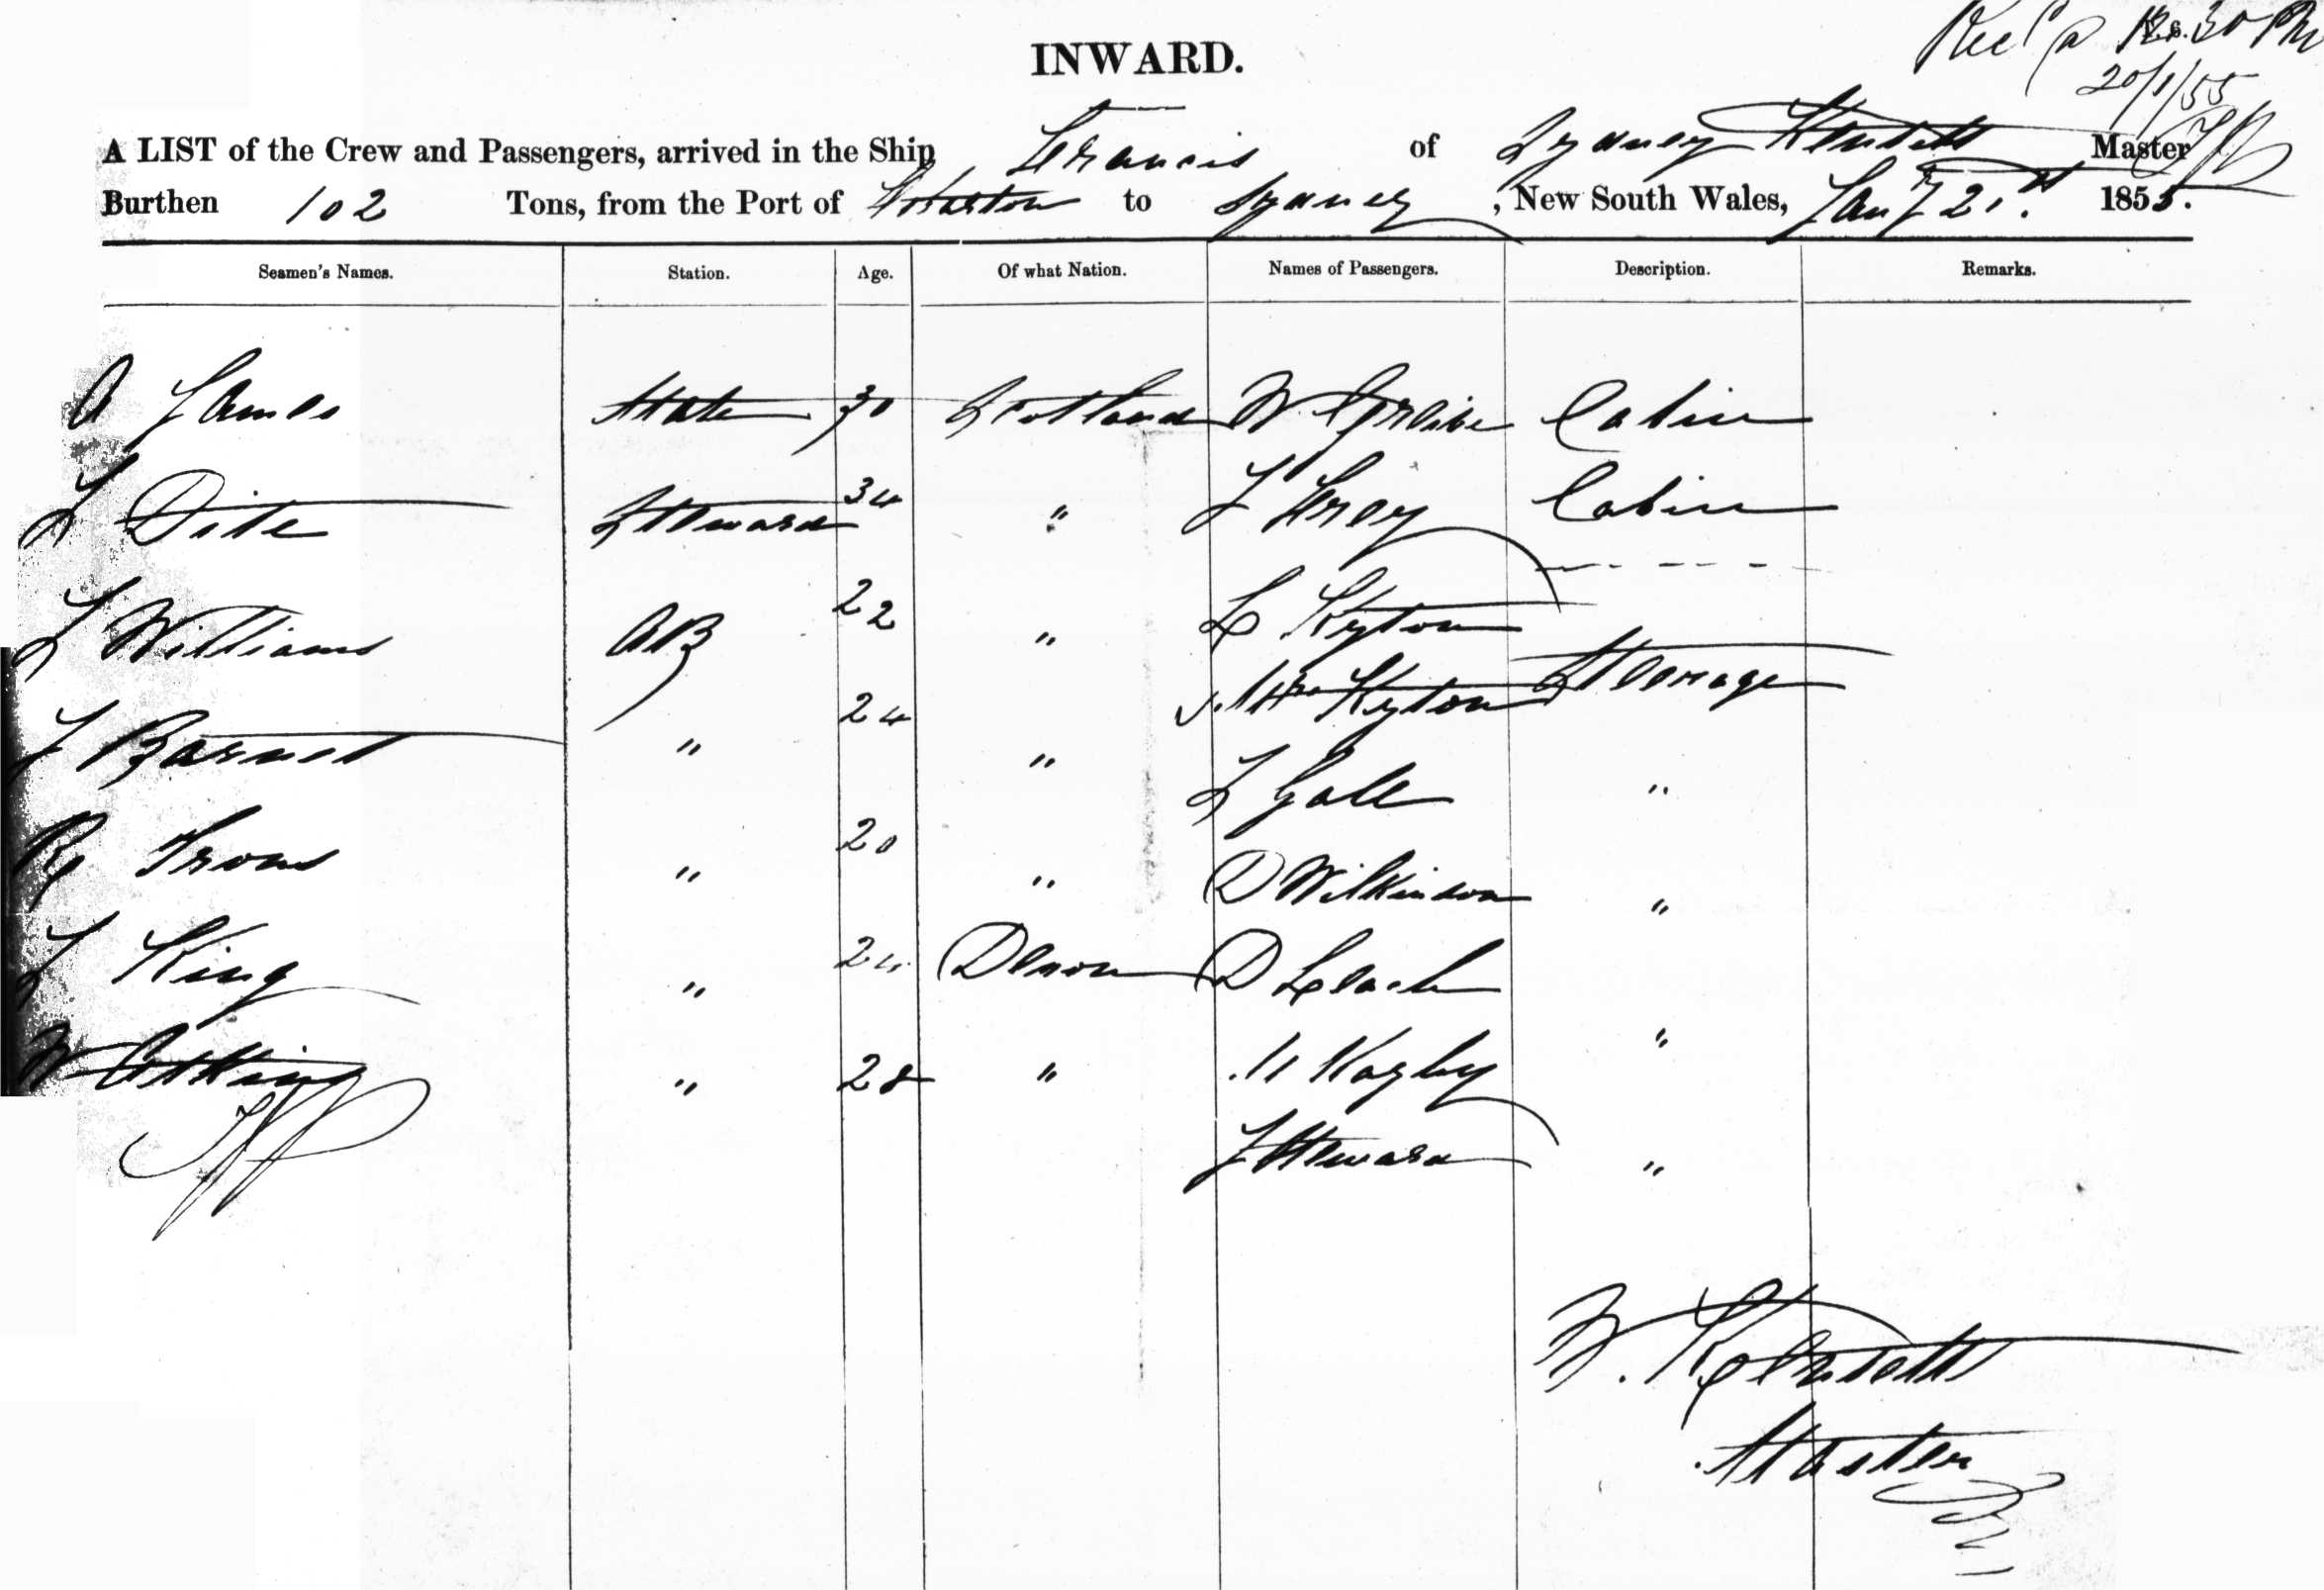 Recd @ 12.30 PM
20/1/55
INWARD.
A LIST of the Crew and Passengers, arrived in the Ship Francis of Sydney Master
Burthen 102 Tons, from the Port of Hobarton to Sydney, New South Wales, Jany 21st 1855.
Seamen's Names. Station. Age. Of what Nation. Names of Passengers. Description. Remarks.
A James Mate 30 Scotland W Cabin
Steward 34 " Cabin
J Williams AB 22 " L Kyton
J Barnet " 24 " Mrs Kyton Steerage
Irons " 20 " J Gale "
J King " 24 Devon D Wilkinson "
W Atkins " 28 " D Leach
"
J Steward "
W.
Master